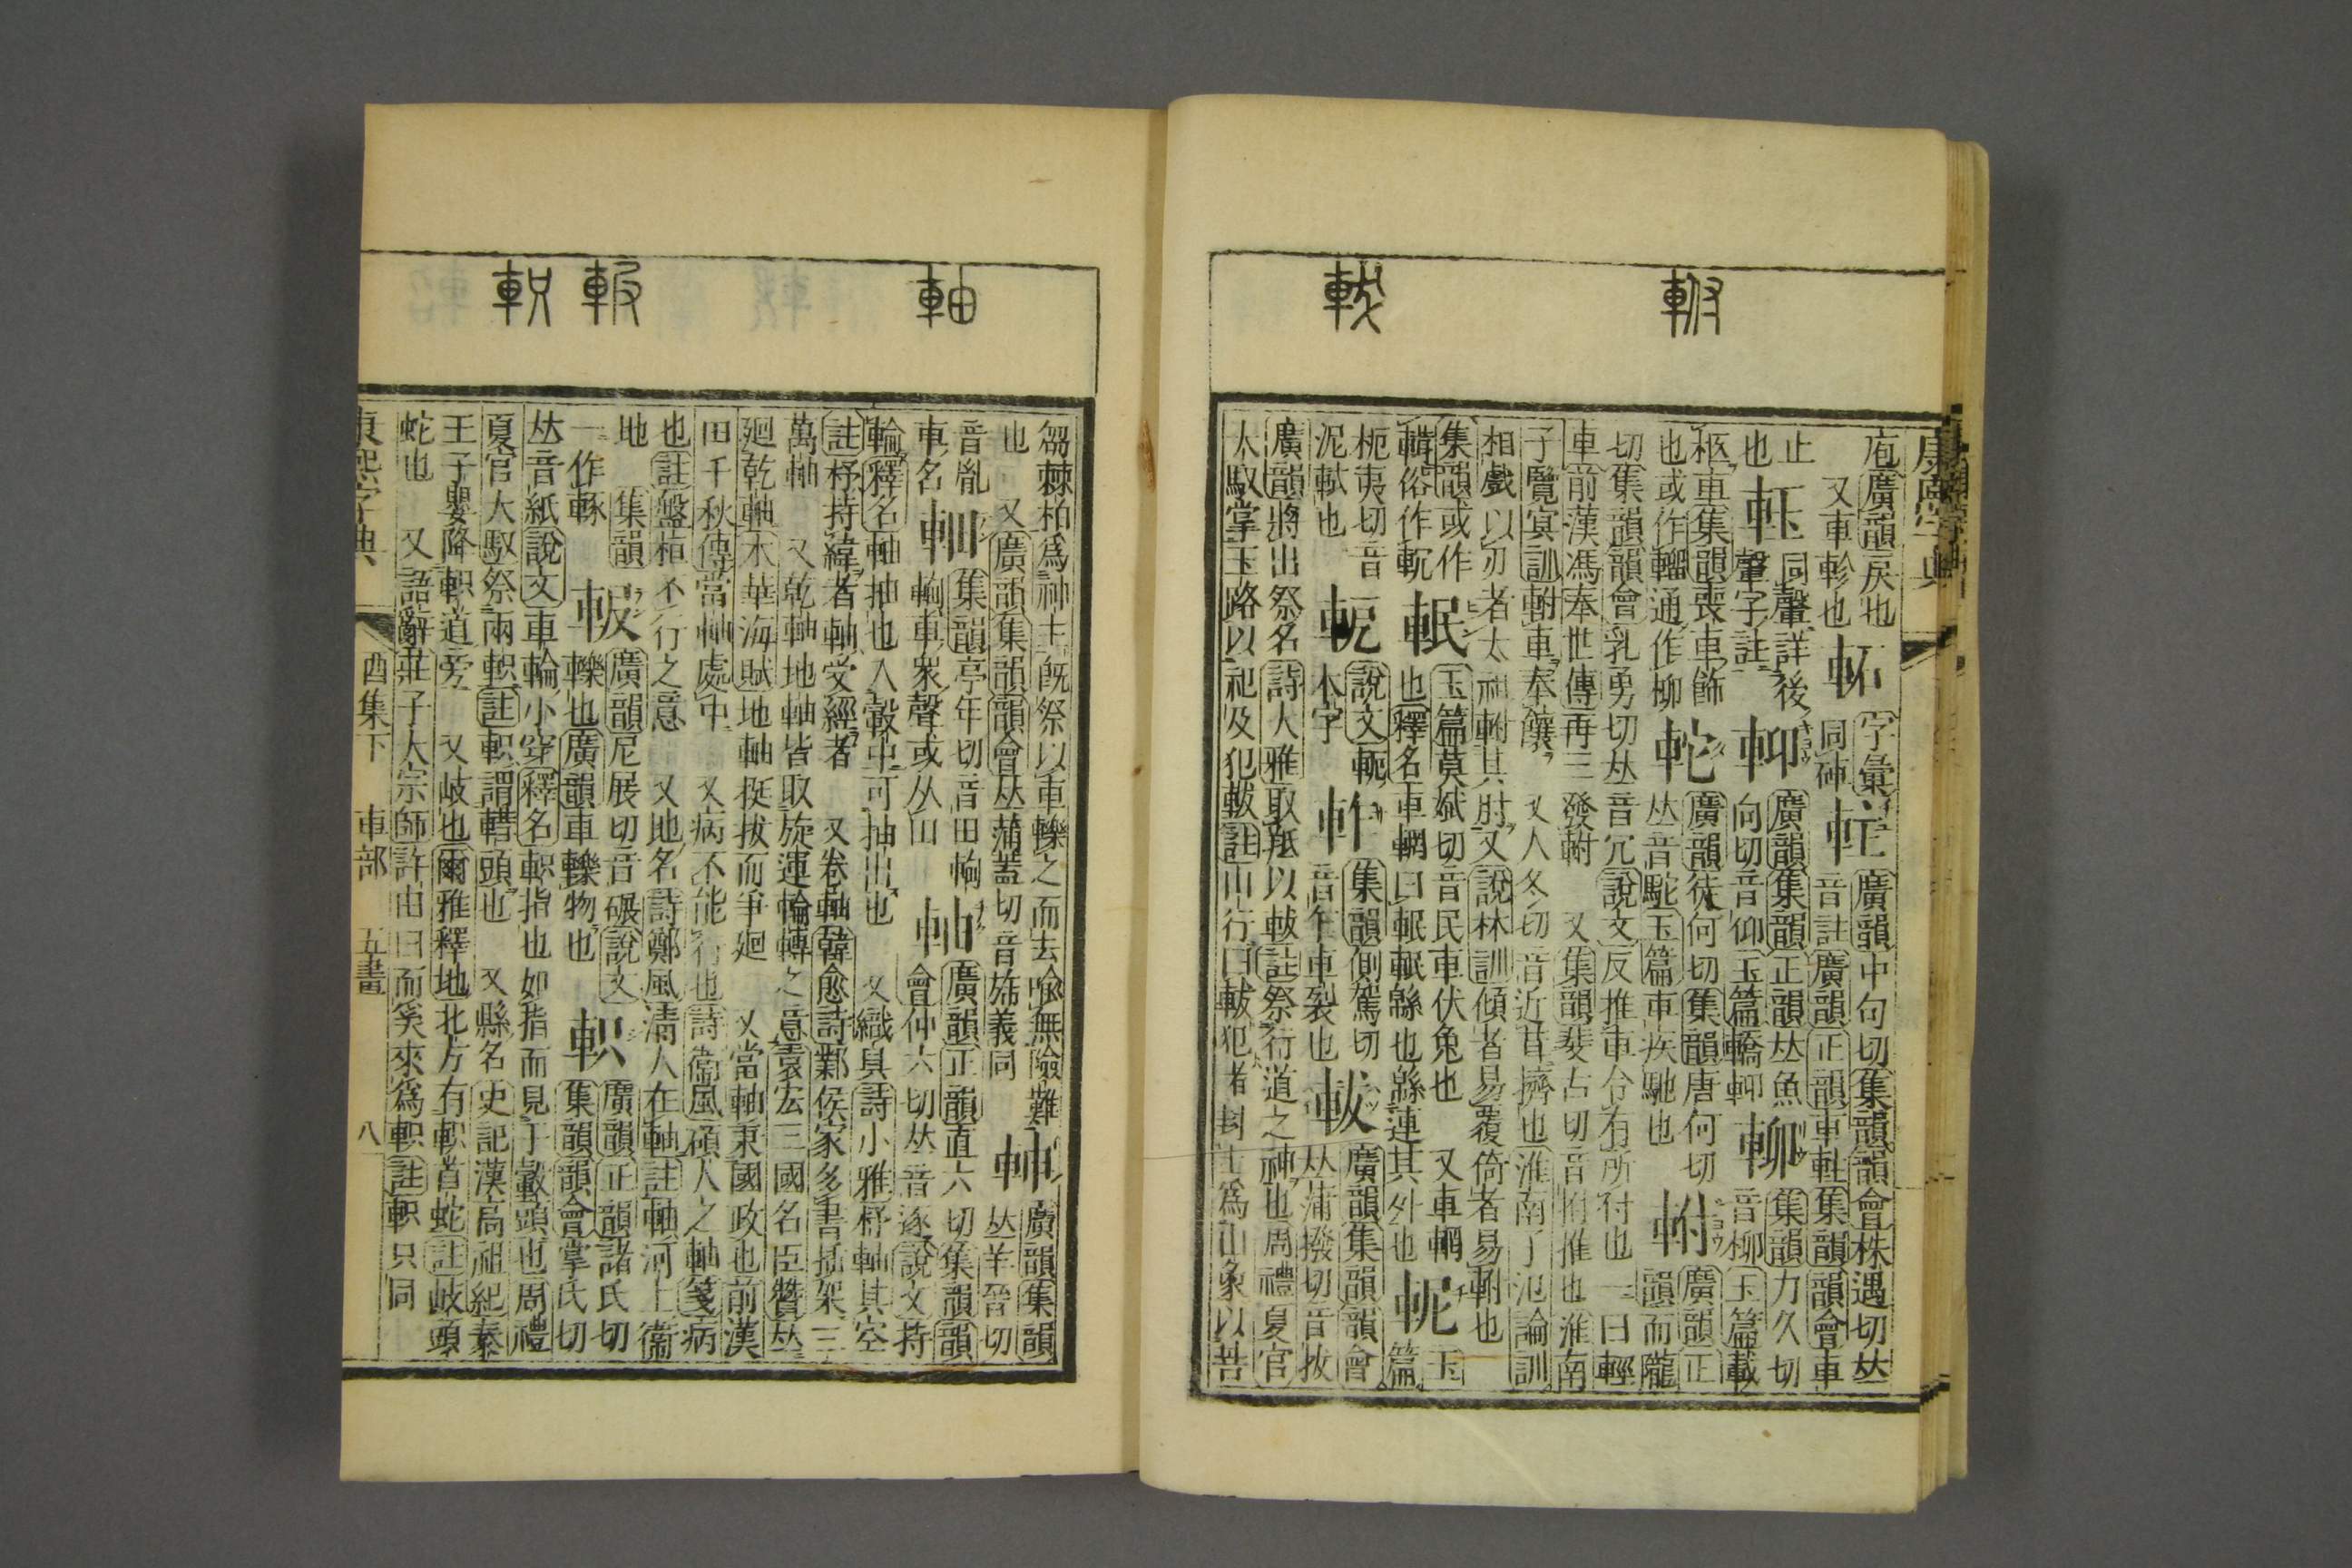 庖廣韻戾也
又車軫也 字彙同砷 軴 廣韻中句切集韻韻會株遇切𠀤
音註廣韻正韻車軴集韻韻會車
止也 同聲詳後聲字註 廣韻集韻正韻𠀤魚向切音仰玉篇轎䡉 集韻力久切
音柳玉篇載
柩車集韻喪車飾也或作轠通作柳 廣韻徒何切集韻唐何切
𠀤音駝玉篇車疾馳也 軵 廣韻正韻而隴
切集韻韻會乳勇切𠀤音宂說文反推車令有所付也一曰輕
車前漢馮奉世傳再三發軵 又集韻斐古切音拊推也淮南
子覽冥訓軵車奉饟 又人冬切音近茸擠也淮南子氾論訓
相戲以刃者太祖軵其肘又說林訓傾者易覆倚者易軵也
集韻或作
玉篇 切音民車伏兔也 又車輞
也釋名車輞曰䡑䡑緜也緜連其外也 玉篇
柅夷切音
泥軾也 軶 說文軛本字 集韻側駕切音窄車裂也 軷 廣韻集韻韻會
𠀤蒲撥切音拔
廣韻將出祭名詩大雅取羝以軷註祭行道之神也周禮夏官
大馭掌玉路以祀及犯軷註山行曰軷犯者封土爲山象以菩
康熙字典
軸
芻棘柏爲神主旣祭以車轢之而去喻無險難
也 又廣韻集韻韻會𠀤蒲蓋切音旆義同 廣韻集韻𠀤羊晉切
音胤車名 集韻亭年切音田輷輷車衆聲或从田 軸 廣韻正韻直六切集韻韻
會仲六切𠀤音逐說文持
輪釋名軸抽也入轂中可抽出也 又織具詩小雅杼軸其空
註杼持緯者軸受經者 又卷軸韓愈詩鄴侯家多書插架三
萬軸 又乾軸地軸皆取旋運輪轉之意袁宏三國名臣贊𠀤
廻乾軸木華海賦地軸挺拔而爭廻 又當軸秉國政也前漢
田千秋傳當軸處中 又病不能行也詩衞風碩人之軸箋病
也註盤桓不行之意 又地名詩鄭風淸人在軸註軸河上衞
地 集韻一作 廣韻尼展切音碾說文轢也廣韻車轢物也 軹 廣韻正韻諸氏切
集韻韻會掌氏切
𠀤音紙說文車輪小穿釋名軹指也如指而見于轂頭也周禮
夏官大馭祭兩軹註軹謂轊頭也 又縣名史記漢高祖紀秦
王子嬰降軹道旁 又岐也爾雅釋地北方有軹首蛇註岐頭
蛇也 又語辭莊子大宗師許由曰而奚來爲軹註軹只同
康熙字典 酉集下 車部 五畫 八